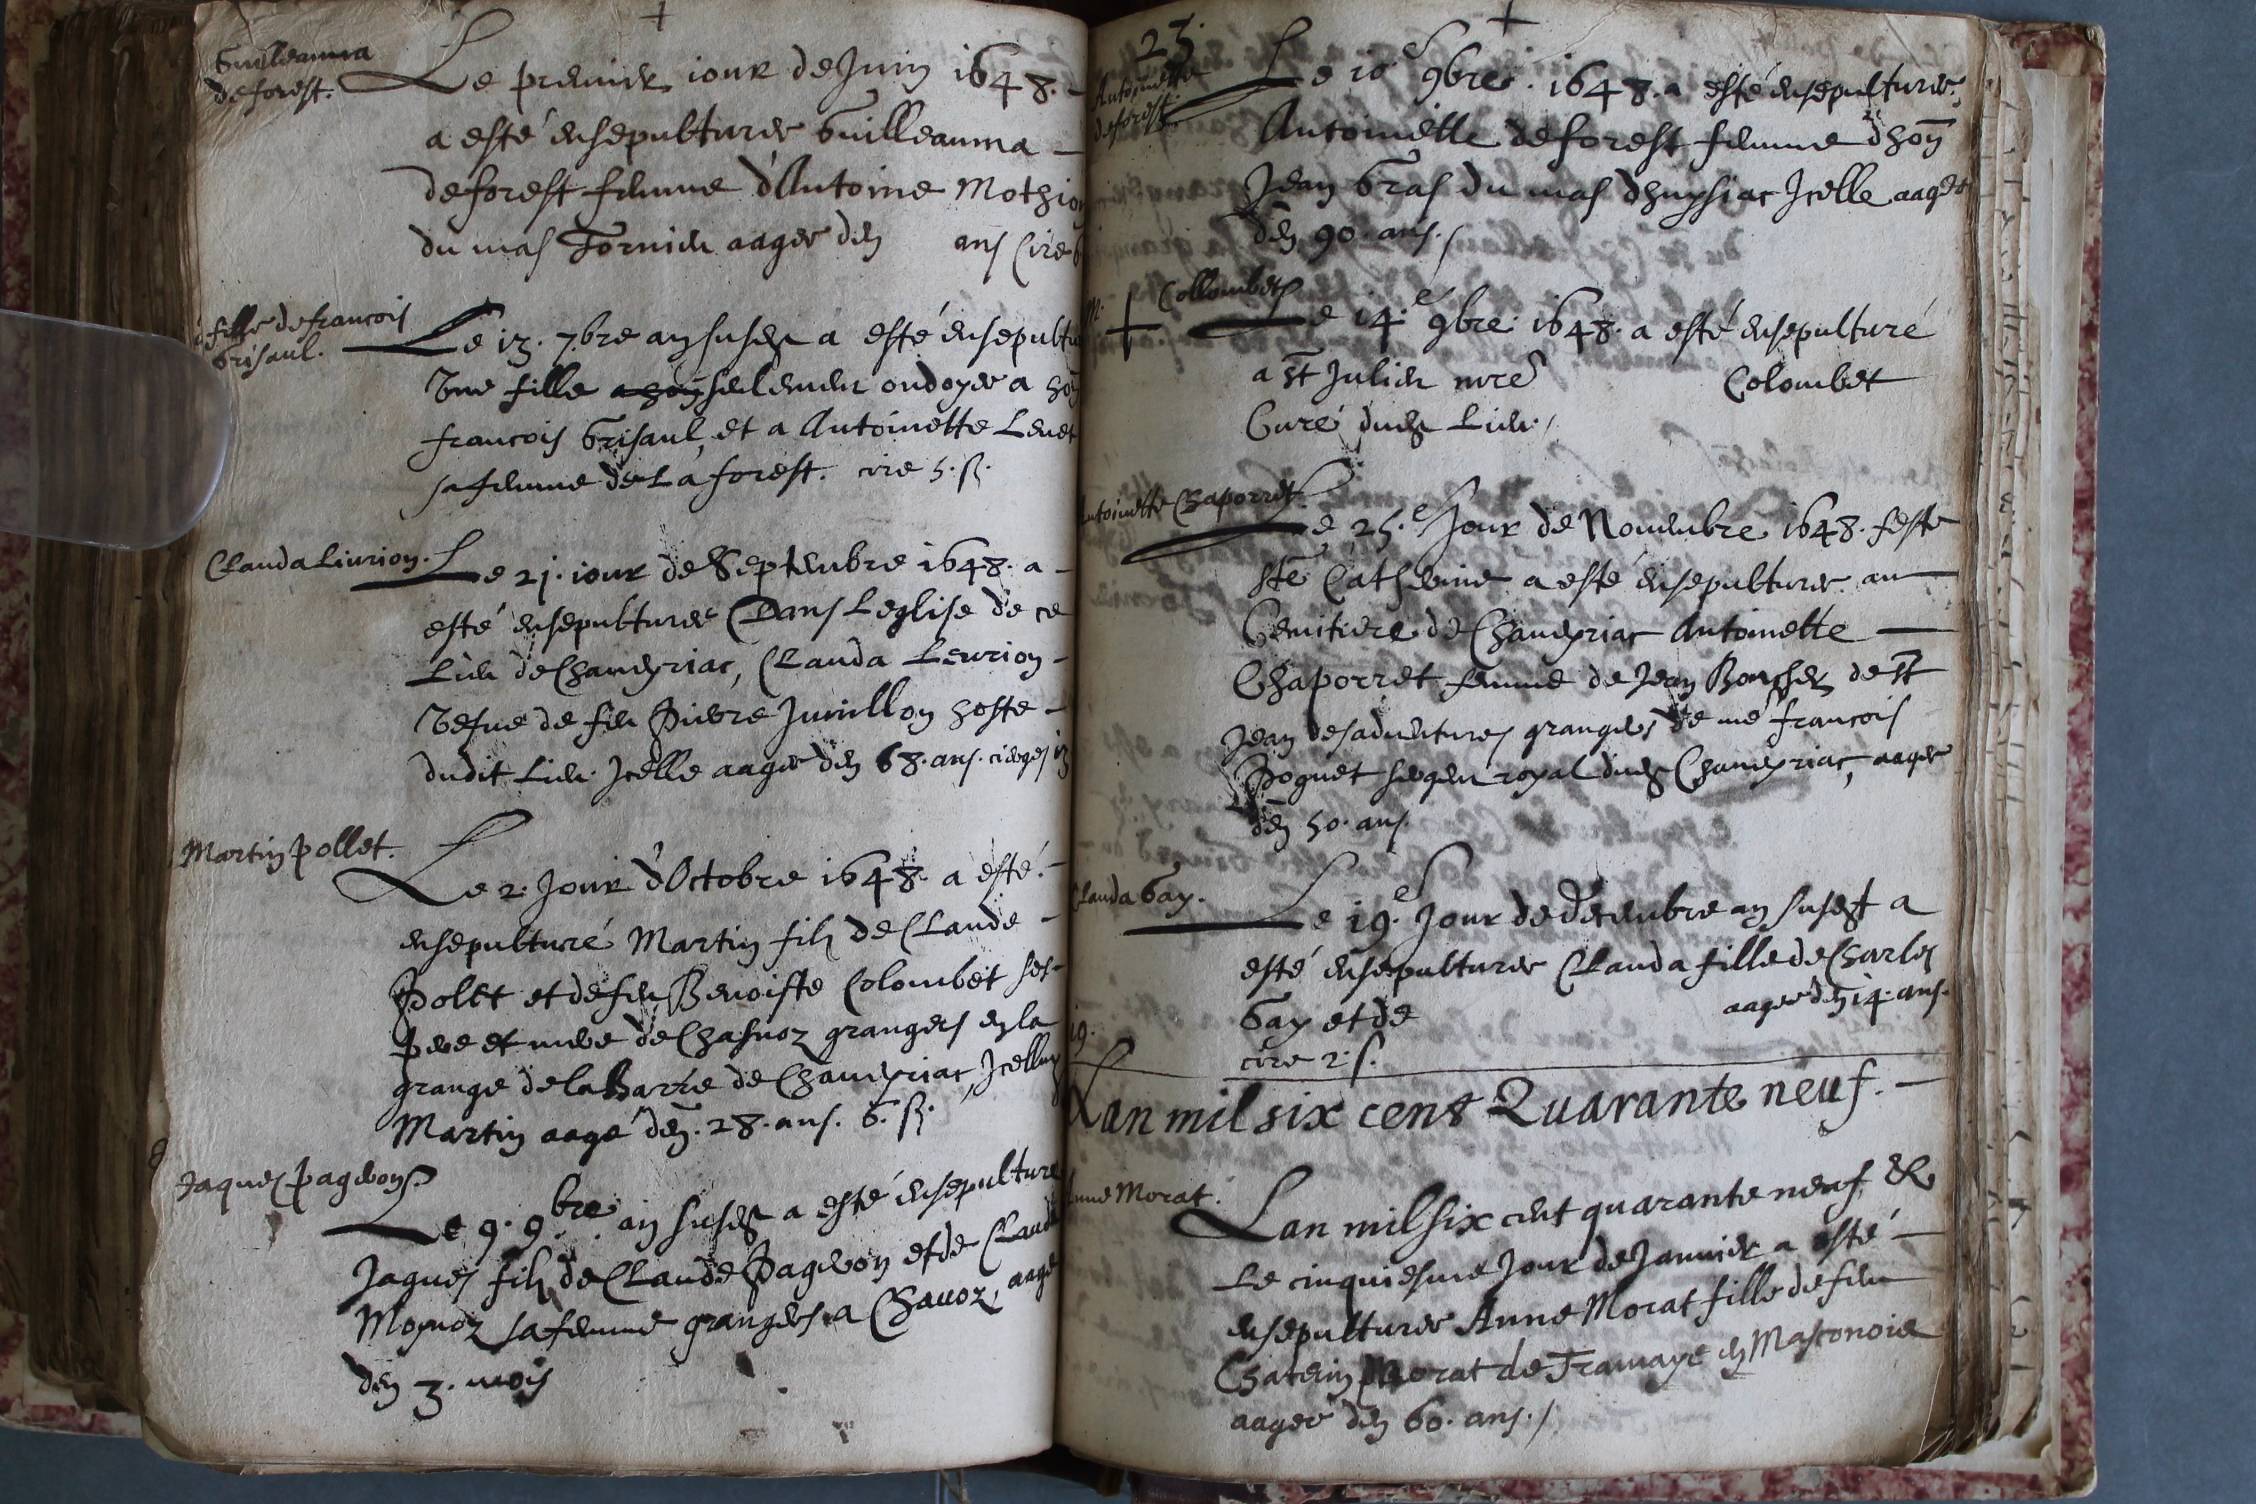 Guilleauma
deforest.
Le premier iour de Juin 1648.
a esté ensepulturee Guilleauma
deforest femme d'Antoine Mothion
du mas Fornier aagee d'en ans Cire 6
fille de francois
Grisaul.
Le 13. 7.bre an susd. a esté ensepultu
Une fille seulement ondoyee a hon
francois Grisaul, et a Antoinette Levet
sa femme de La forest. cire 5. s.
Clauda Livrion.
Le 21. iour de Septembre 1648. a
esté ensepulturee Dans Leglise de ce
Lieu de Chaveyriac, Clauda Leurion
Vefue de feu Pierre Juvillon hoste
dudit Lieu. Jcelle aagee d'en 68. ans. cierges 13
Martin pollet.
Le 2. Jour d'Octobre 1648. a esté
ensepulturé Martin filz de Claude
Polet et de feu Benoiste Colombet ses
pere et mere de Chasnoz grangers en la
grange de la Barre de Chaveyriac, Jcelluy
Martin aagé d'en. 28. ans. 6. s.
Jaques pageons.
Le 9. 9.bre an susd. a esté ensepulturé
Jaques filz de Claude Pageon et de Claud
Moynoz sa femme grangers a Chavoz, aagé
d'en 3. mois
23.
Antoinette
deforest.
Le 10e 9bre. 1648. a esté ensepulturee
Antoinette deforest femme d'hon
Jean Gras du mas d'huysiac Jcelle aagee
d'en 90. ans.
M. Collombet
Le 14.e 9bre. 1648. a esté ensepulturé
a St Julien mre Colombet
Curé dud. Lieu.
Antoinette Chaporret
Le 25.e Jour de Novembre 1648. feste
Ste Catherine a esté ensepulturee au
Cemitiere de Chaveyriac Antoinette
Chaporret femme de Jean Boucher de St
Jean desadventures grangers de me francois
Poguet sergen royal dud. Chaveyriac, aagee
d'en 50. ans.
Clauda Gay.
Le 19.e Jour de Decembre an susd. a
esté ensepulturee Clauda fille de Charles
Gay et de aagee d'en 14. ans.
cire 2. s.
19.
Lan mil six cent Quarante neuf.
Anne Morat.
Lan mil six cent quarante neuf, &
Le cinquiesme Jour de Janvier a esté
ensepulturee Anne Morat fille de feu
Chaterin Morat de Tramaye en Masconoie
aagee d'en 60. ans.